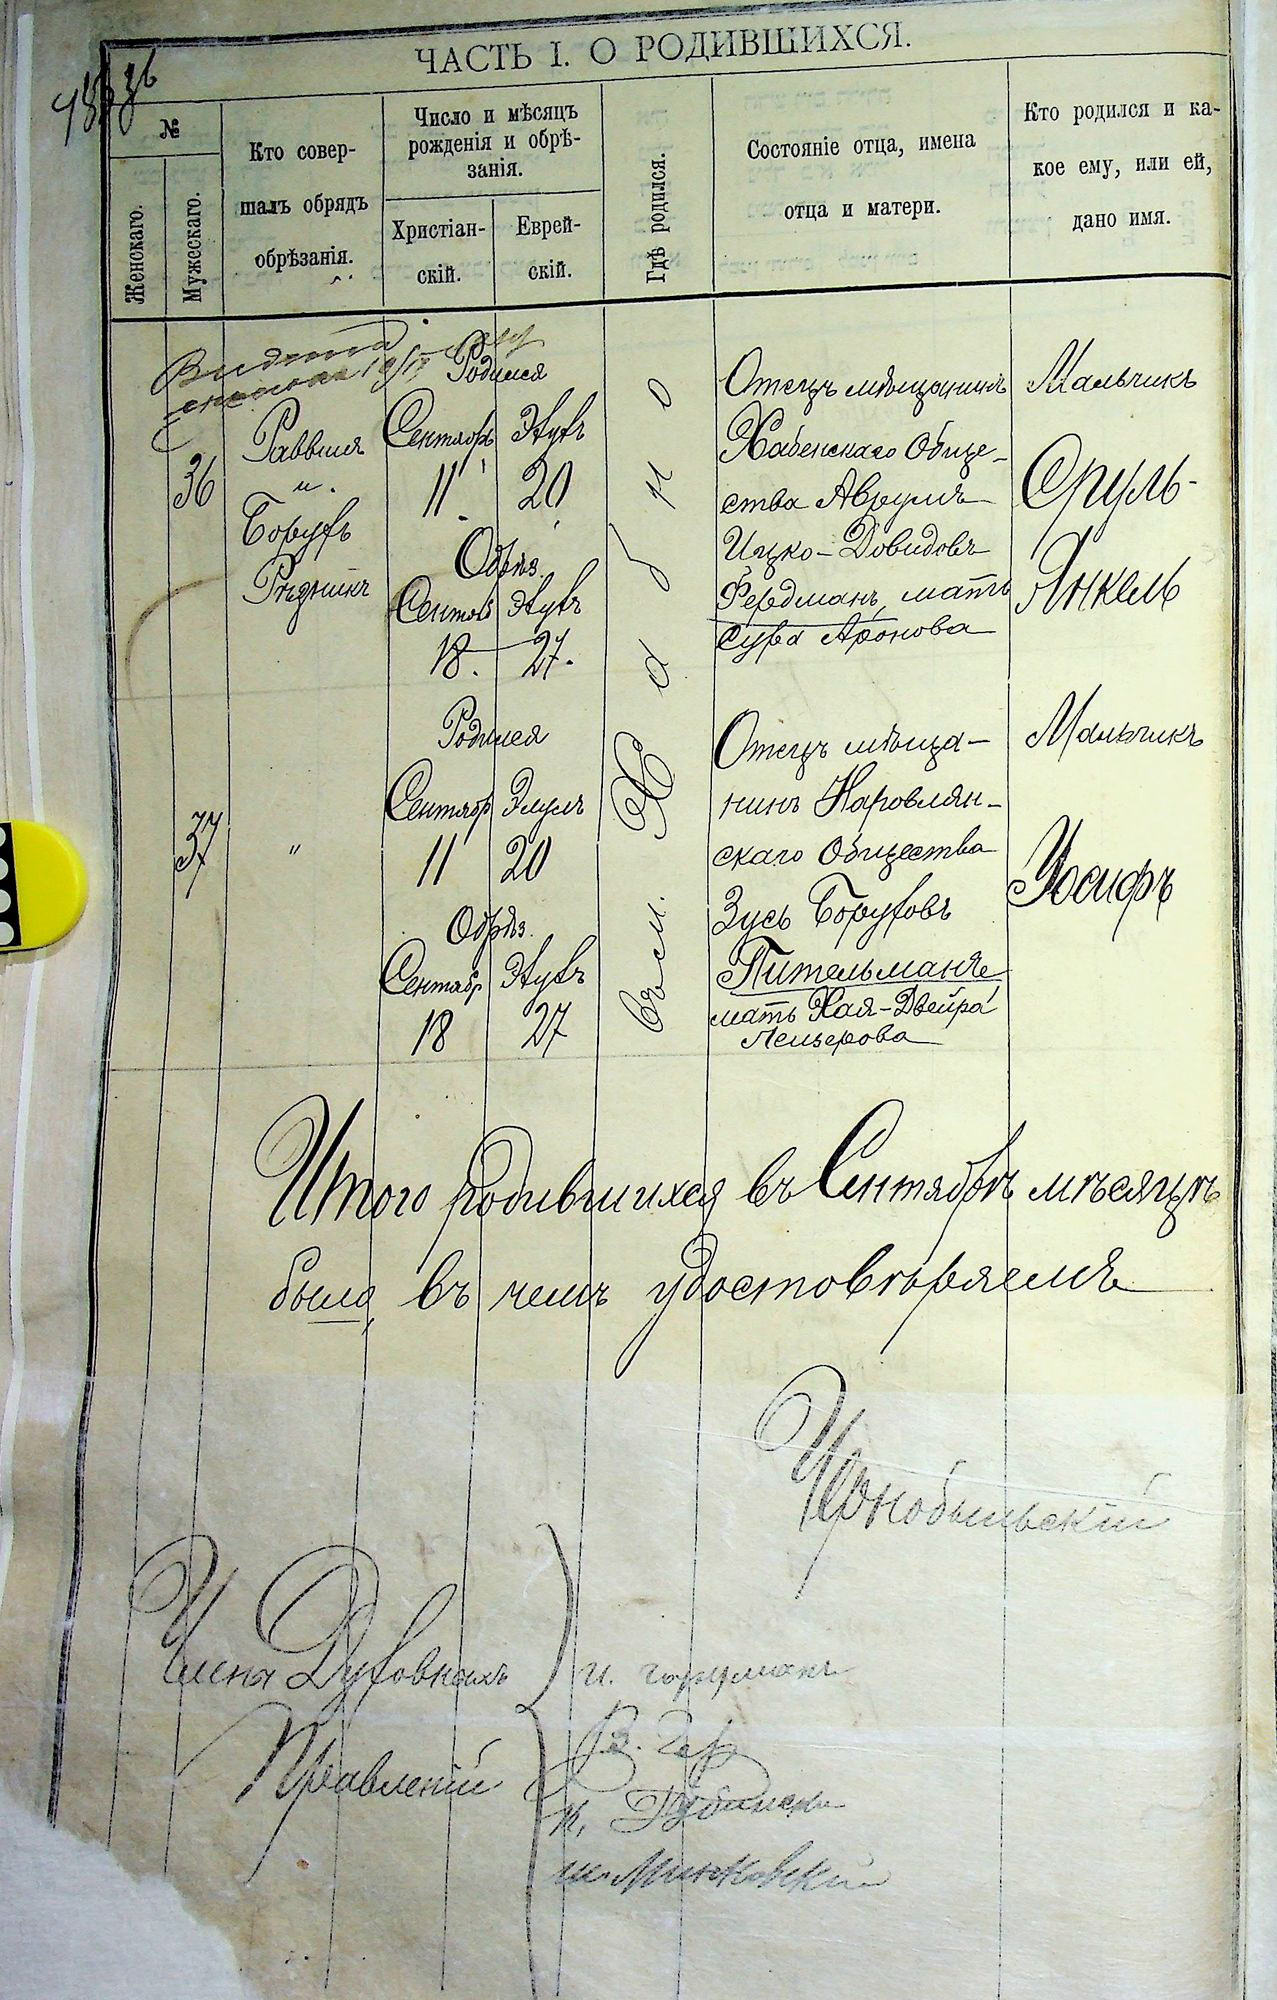 ЧАСТЬ I. О РОДИВШИХСЯ.
№
Женскаго.
Мужескаго.
Кто совер-
шалъ обрядъ
обрѣзанія.
Число и мѣсяцъ
рожденія и обрѣ-
занія.
Христіан-
скій.
Еврей-
скій.
Гдѣ родился.
Состояніе отца, имена
отца и матери.
Кто родился и ка-
кое ему, или ей,
дано имя.
36
Раввинъ
и
Борухъ
Рѣзникъ
Родился
Сентябр
11
20
Обрѣз.
Сентяб
18.
27.
въ м. Хабно
Отецъ мѣщанинъ
Хабенскаго Обще-
ства Аврумъ
Ицко-Довидовъ
Фердманъ, мать
Сура Аронова
Мальчикъ
Сруль-
Янкель
37
"
Родился
Сентябр Элулъ
11 20
Обрѣз.
Сентябр
18 27
Отецъ мѣща-
нинъ Наровлян-
скаго Общества
Зусь Боруховъ
Пительманъ
мать Хая-Двейра
Лейзерова
Мальчикъ
Іосифъ
Итого родившихся въ Сентябрѣ мѣсяцѣ
было, въ чемъ удостовѣряемъ
Чернобыльскій
Члены Духовныхъ
Правленій